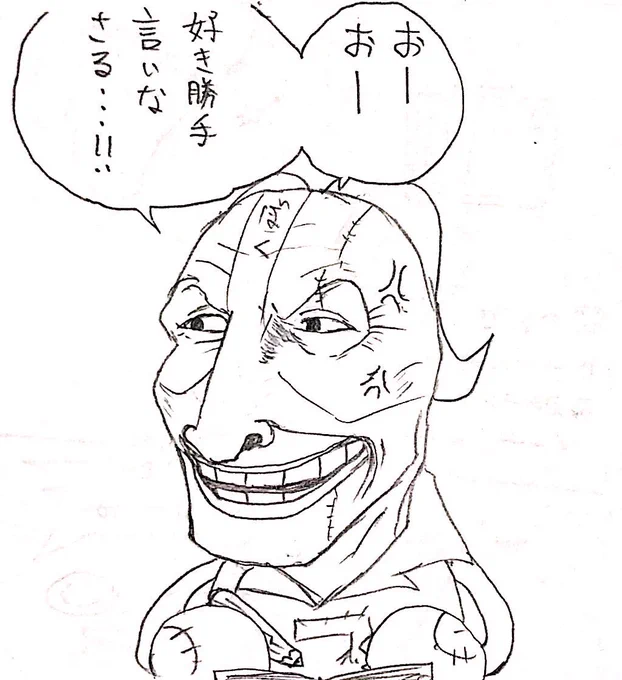 おー
おー
好き勝手
言いな
さる・・・!!